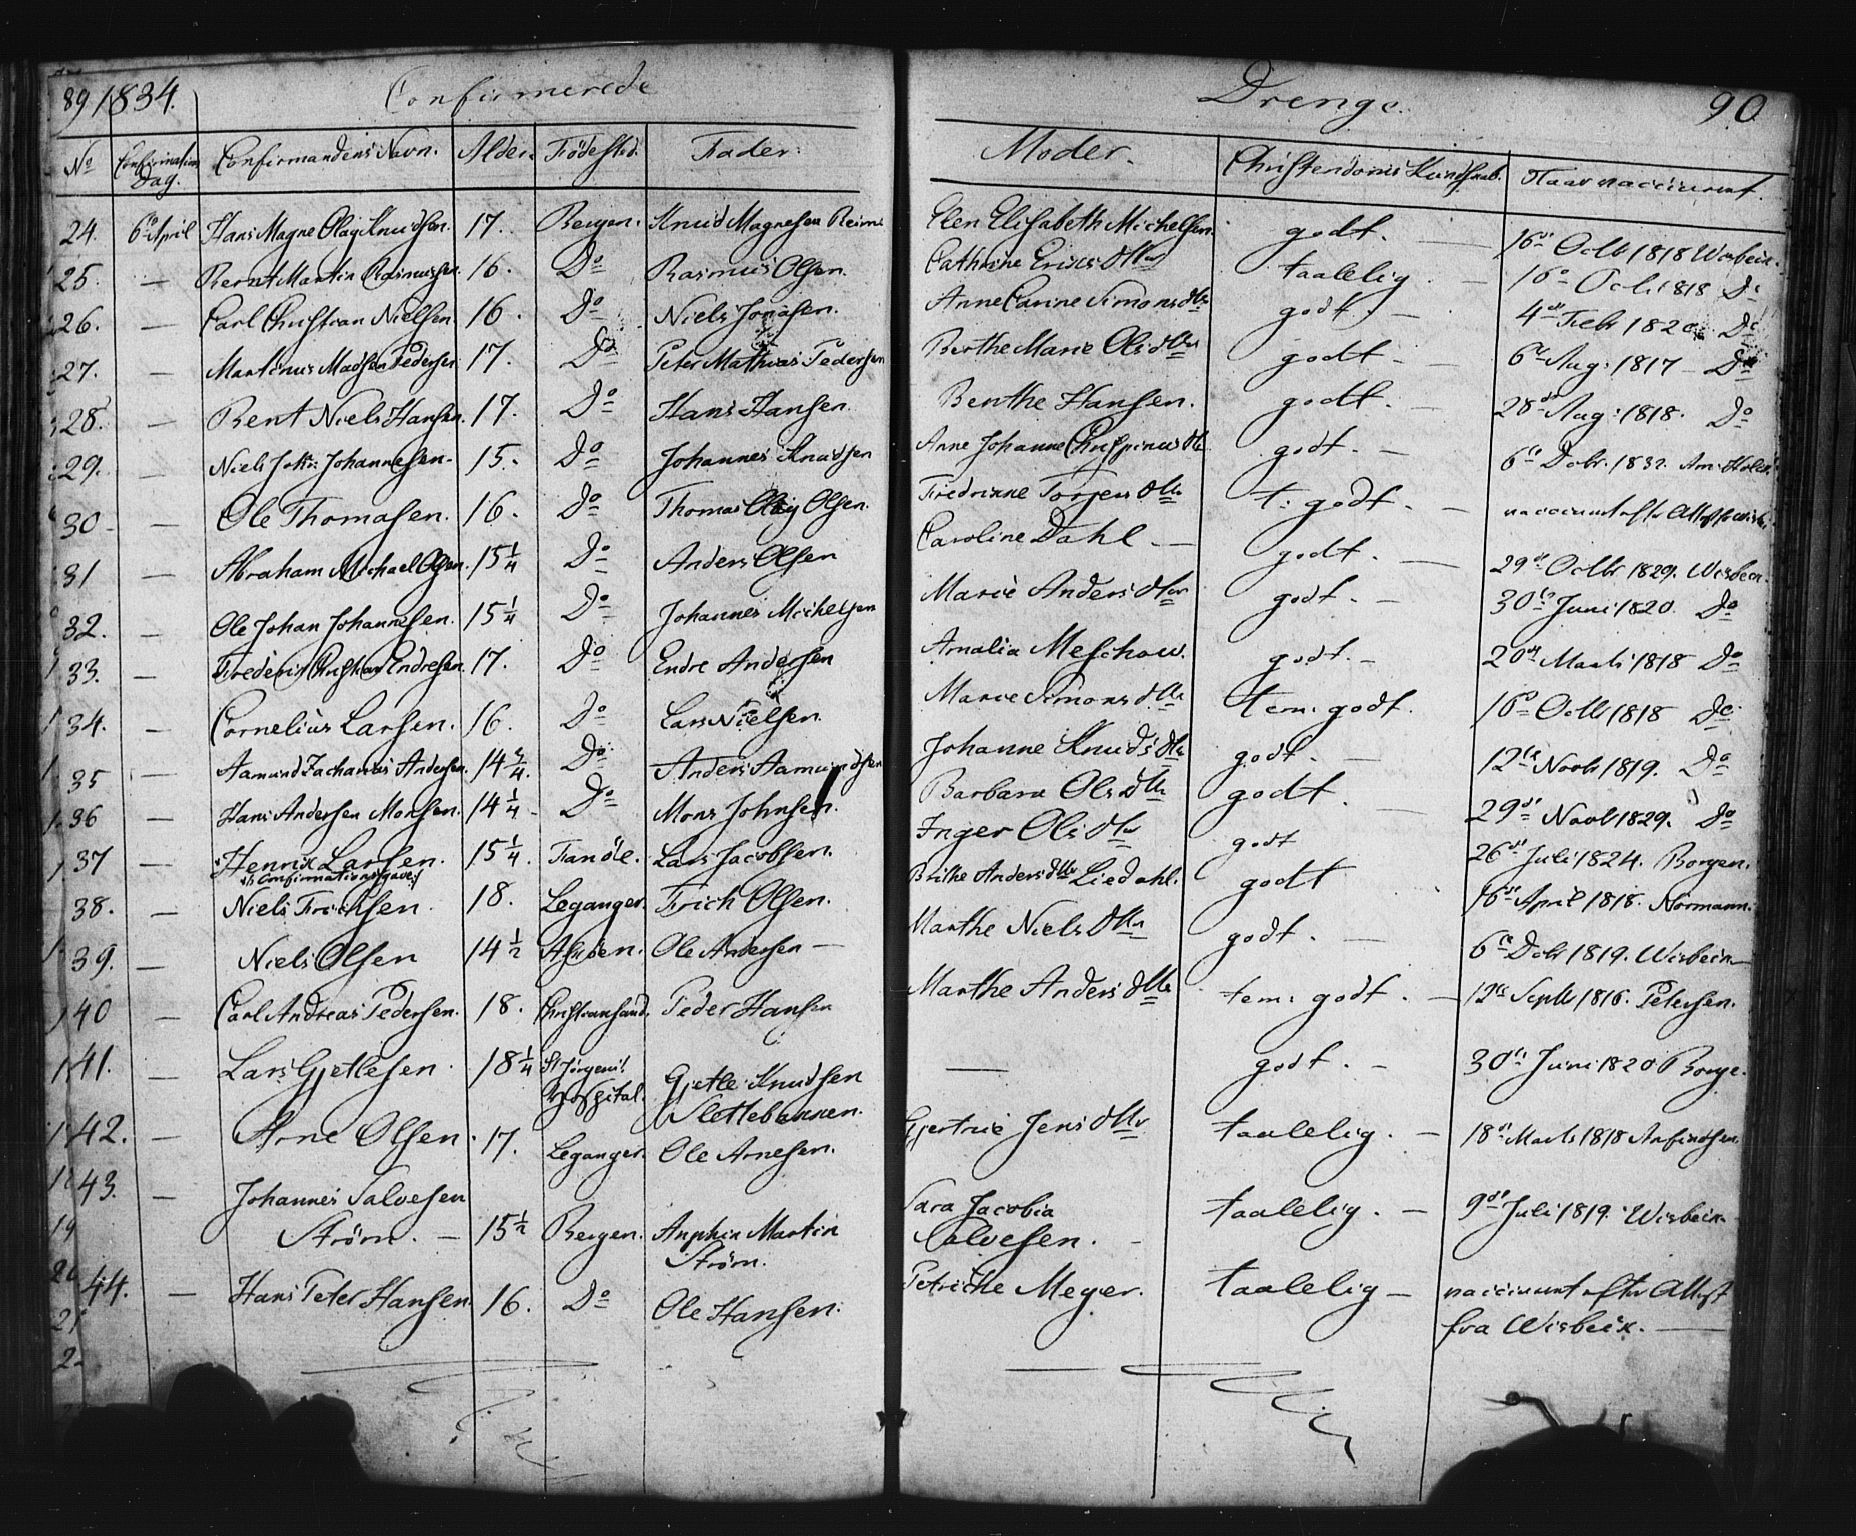 89 1834. Confirmerede Drenge. 90
No Confirmations Dag. Confirmandens Navn. Alder. Fødested. Fader. Moder. Christendoms Kundskab. Naar vaccineret.
24. 6te April Hans Magne Olay Knudsen. 17. Bergen. Knud Magnesen Reim Elen Elisabeth Michelsen. godt. — 16de Octb 1818 Wisbech.
25. — Bernt Martin Rasmussen. 16. Do Rasmus Olsen. Cathrine Erics dtter taalelig. — 16de Octb 1818 Do
26. — Carl Christian Nielsen. 16. Do Niels Jonasen. Anne Carine Simons dtr godt. — 4de Febr 1820. Do
27. — Martinus Madsen Pedersen 17. Do Peter Mathias Pedersen Berthe Marie Ols dtter godt — 6te Aug: 1817 — Do
28. — Bent Niels Hansen. 17. Do Hans Hansen. Benthe Hansen. godt. — 28de Aug: 1818. Do
29. — Niels Joh: Johannesen. 15. Do Johannes Knudsen Anne Johanne Chrispinus dtr godt. — 6te Debr. 1832.
30. — Ole Thomasen. 16. Do Thomas Olay Olsen. Fredrinne Torjers dtter t: godt. — vaccineret efter Attest fra Wisbe
31 — Abraham Michael Olsen. 15 1/4 Do Anders Olsen Caroline Dahl — godt. — 29de Octbr. 1829. Wisbech.
32. — Ole Johan Johannesen. 15 1/4 Do Johannes Michelsen Marie Anders dtter godt. — 30te Juni 1820. Do
33. — Frederik Christian Endresen. 17. Do Endre Andersen Amalia Meschow. godt. — 20de Marts 1818 Do
34. — Cornelius Larsen. 16. Do Lars Nielsen. Marie Simons dtr tem: godt. 16de Octb 1818 Do
35 — Aamund Zacharias Andersen. 14 3/4. Do Anders Aamundsen Johanne Knuds dtr godt. — 12te Novb 1819. Do
36 — Hans Andersen Monsen. 14 1/4 Do Mons Johnsen. Barbara Ols dtr godt. — 29de Novb 1829. Do
37 — Henrik Larsen. 15 1/4. Fanöe. Lars Jacobsen. Inger Ols dtr godt 26de Juli 1824. Borgen.
38. — Niels Frichsen. 18. Leganger. Frich Olsen. Brithe Anders dtter Liedahl. godt 16de April 1818. Normann.
39. — Niels Olsen 14 1/2 Ole Andersen — Marthe Niels dtter godt. — 6te Debr 1819. Wisbech —
40 — Carl Andreas Pedersen. 18. Christiansand. Peder Hansen Marthe Anders dtter tem: godt. — 12te Septb 1816. Petersen.
41. — Lars Gjetlesen. 18 1/4 St Jörgens Hospital. Gjetle Knudsen Slettebannen. — godt. — 30te Juni 1820 Borge.
42. — Arne Olsen. 17. Leganger. Ole Arnesen. Gjertrue Jens dtter taalelig. — 18de Marts 1818 Anfindsen
43. — Johannes Salvesen
Strøm. — 15 1/2 Bergen. Anphin Martin Strøm. Sara Jacobia Salvesen. — taalelig. — 9de Juli 1819. Wisbech.
44. — Hans Peter Hansen. 16. Do Ole Hansen. Petriche Meyer. taalelig — vaccineret efter Attest
fra Wisbech. —